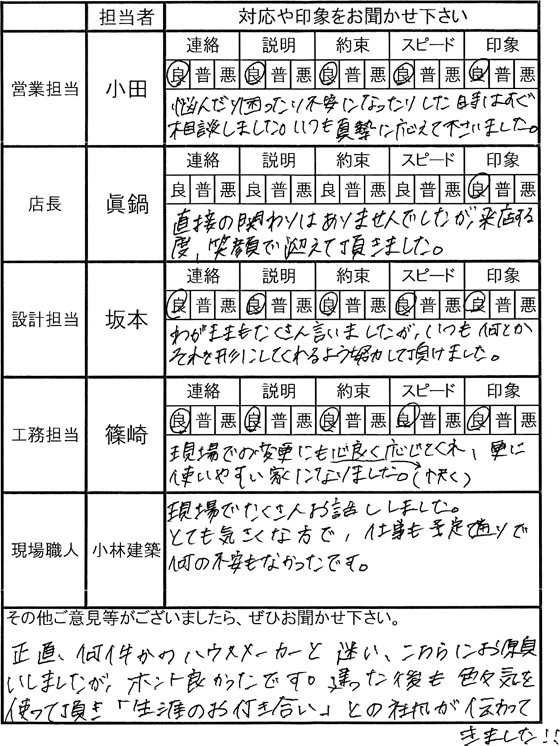 担当者 対応や印象をお聞かせ下さい
営業担当 小田
連絡 説明 約束 スピード 印象
良 普 悪 良 普 悪 良 普 悪 良 普 悪 良 普 悪
悩んだり困ったり不安になったりした時はすぐ
相談しました。いつも真摯に応えて下さいました。
店長 眞鍋
連絡 説明 約束 スピード 印象
良 普 悪 良 普 悪 良 普 悪 良 普 悪 良 普 悪
直接の関わりはありませんでしたが、来店する
度、笑顔で迎えて頂きました。
設計担当 坂本
連絡 説明 約束 スピード 印象
良 普 悪 良 普 悪 良 普 悪 良 普 悪 良 普 悪
わがままもたくさん言いましたが、いつも何とか
それを形にしてくれるよう努力して頂けました。
工務担当 篠崎
連絡 説明 約束 スピード 印象
良 普 悪 良 普 悪 良 普 悪 良 普 悪 良 普 悪
現場での変更にも心良く応じてくれ、更に
使いやすい家になりました。(快く)
現場職人 小林建築
現場でたくさんお話ししました。
とても気さくな方で、仕事も予定通りで
何の不安もなかったです。
その他ご意見等がございましたら、ぜひお聞かせ下さい。
正直、何件かのハウスメーカーと迷い、こちらにお願
いしましたが、ホント良かったです。建った後も色々気を
使って頂き「生涯のお付き合い」との社訓が伝わって
きました!!